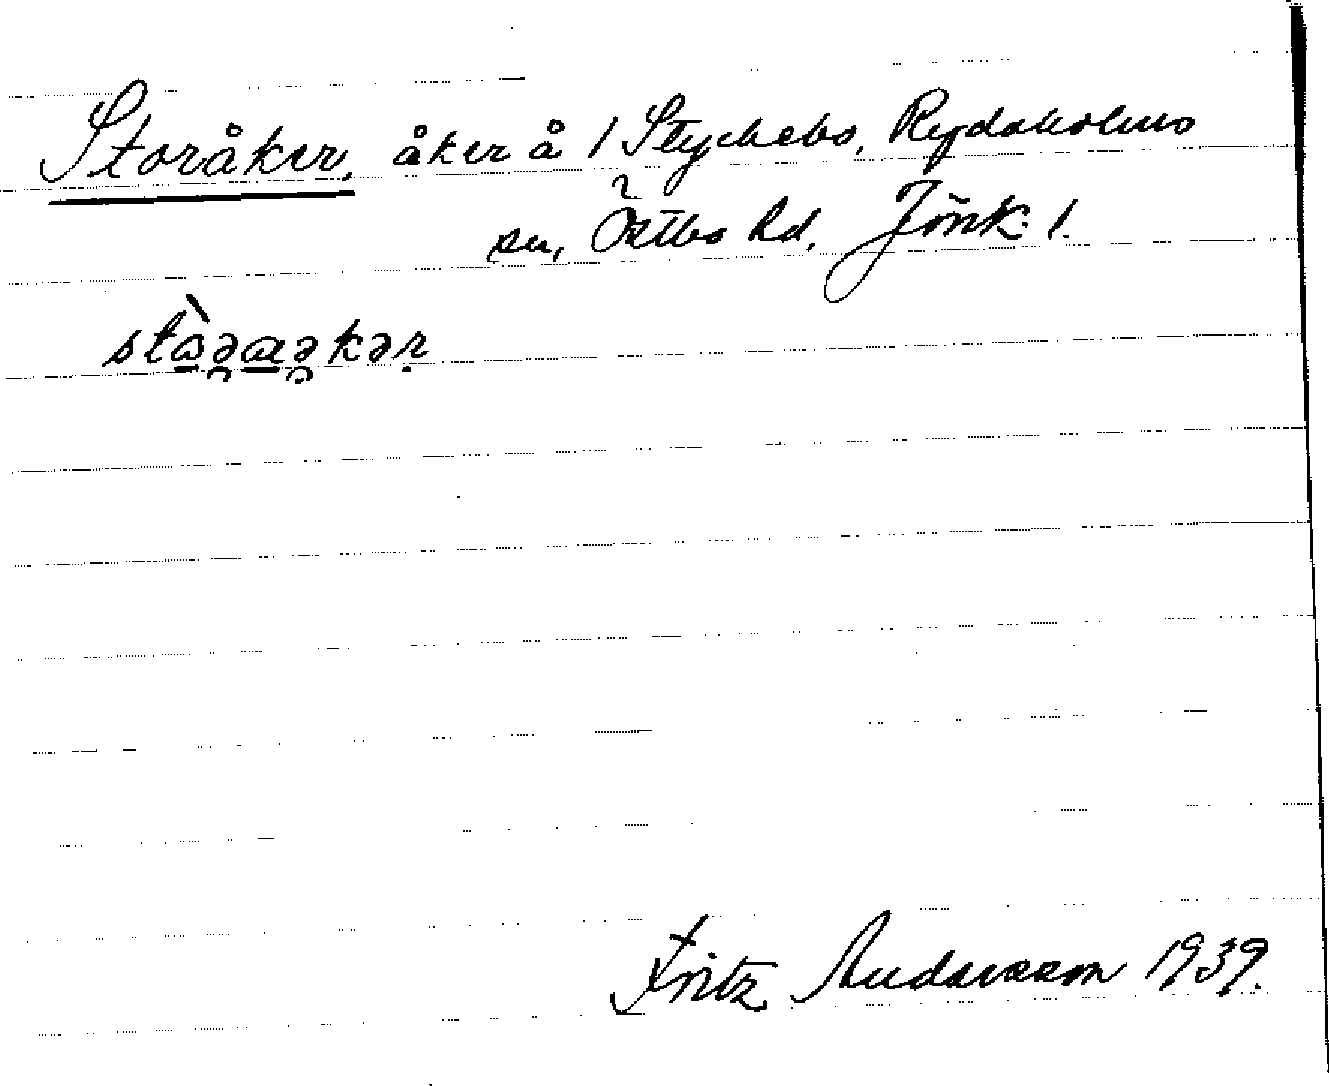 Storåker, åker å 1 Styckebo, Rydaholms
sn, Östbo hd, Jönk. l.
Fritz Andersson 1939.